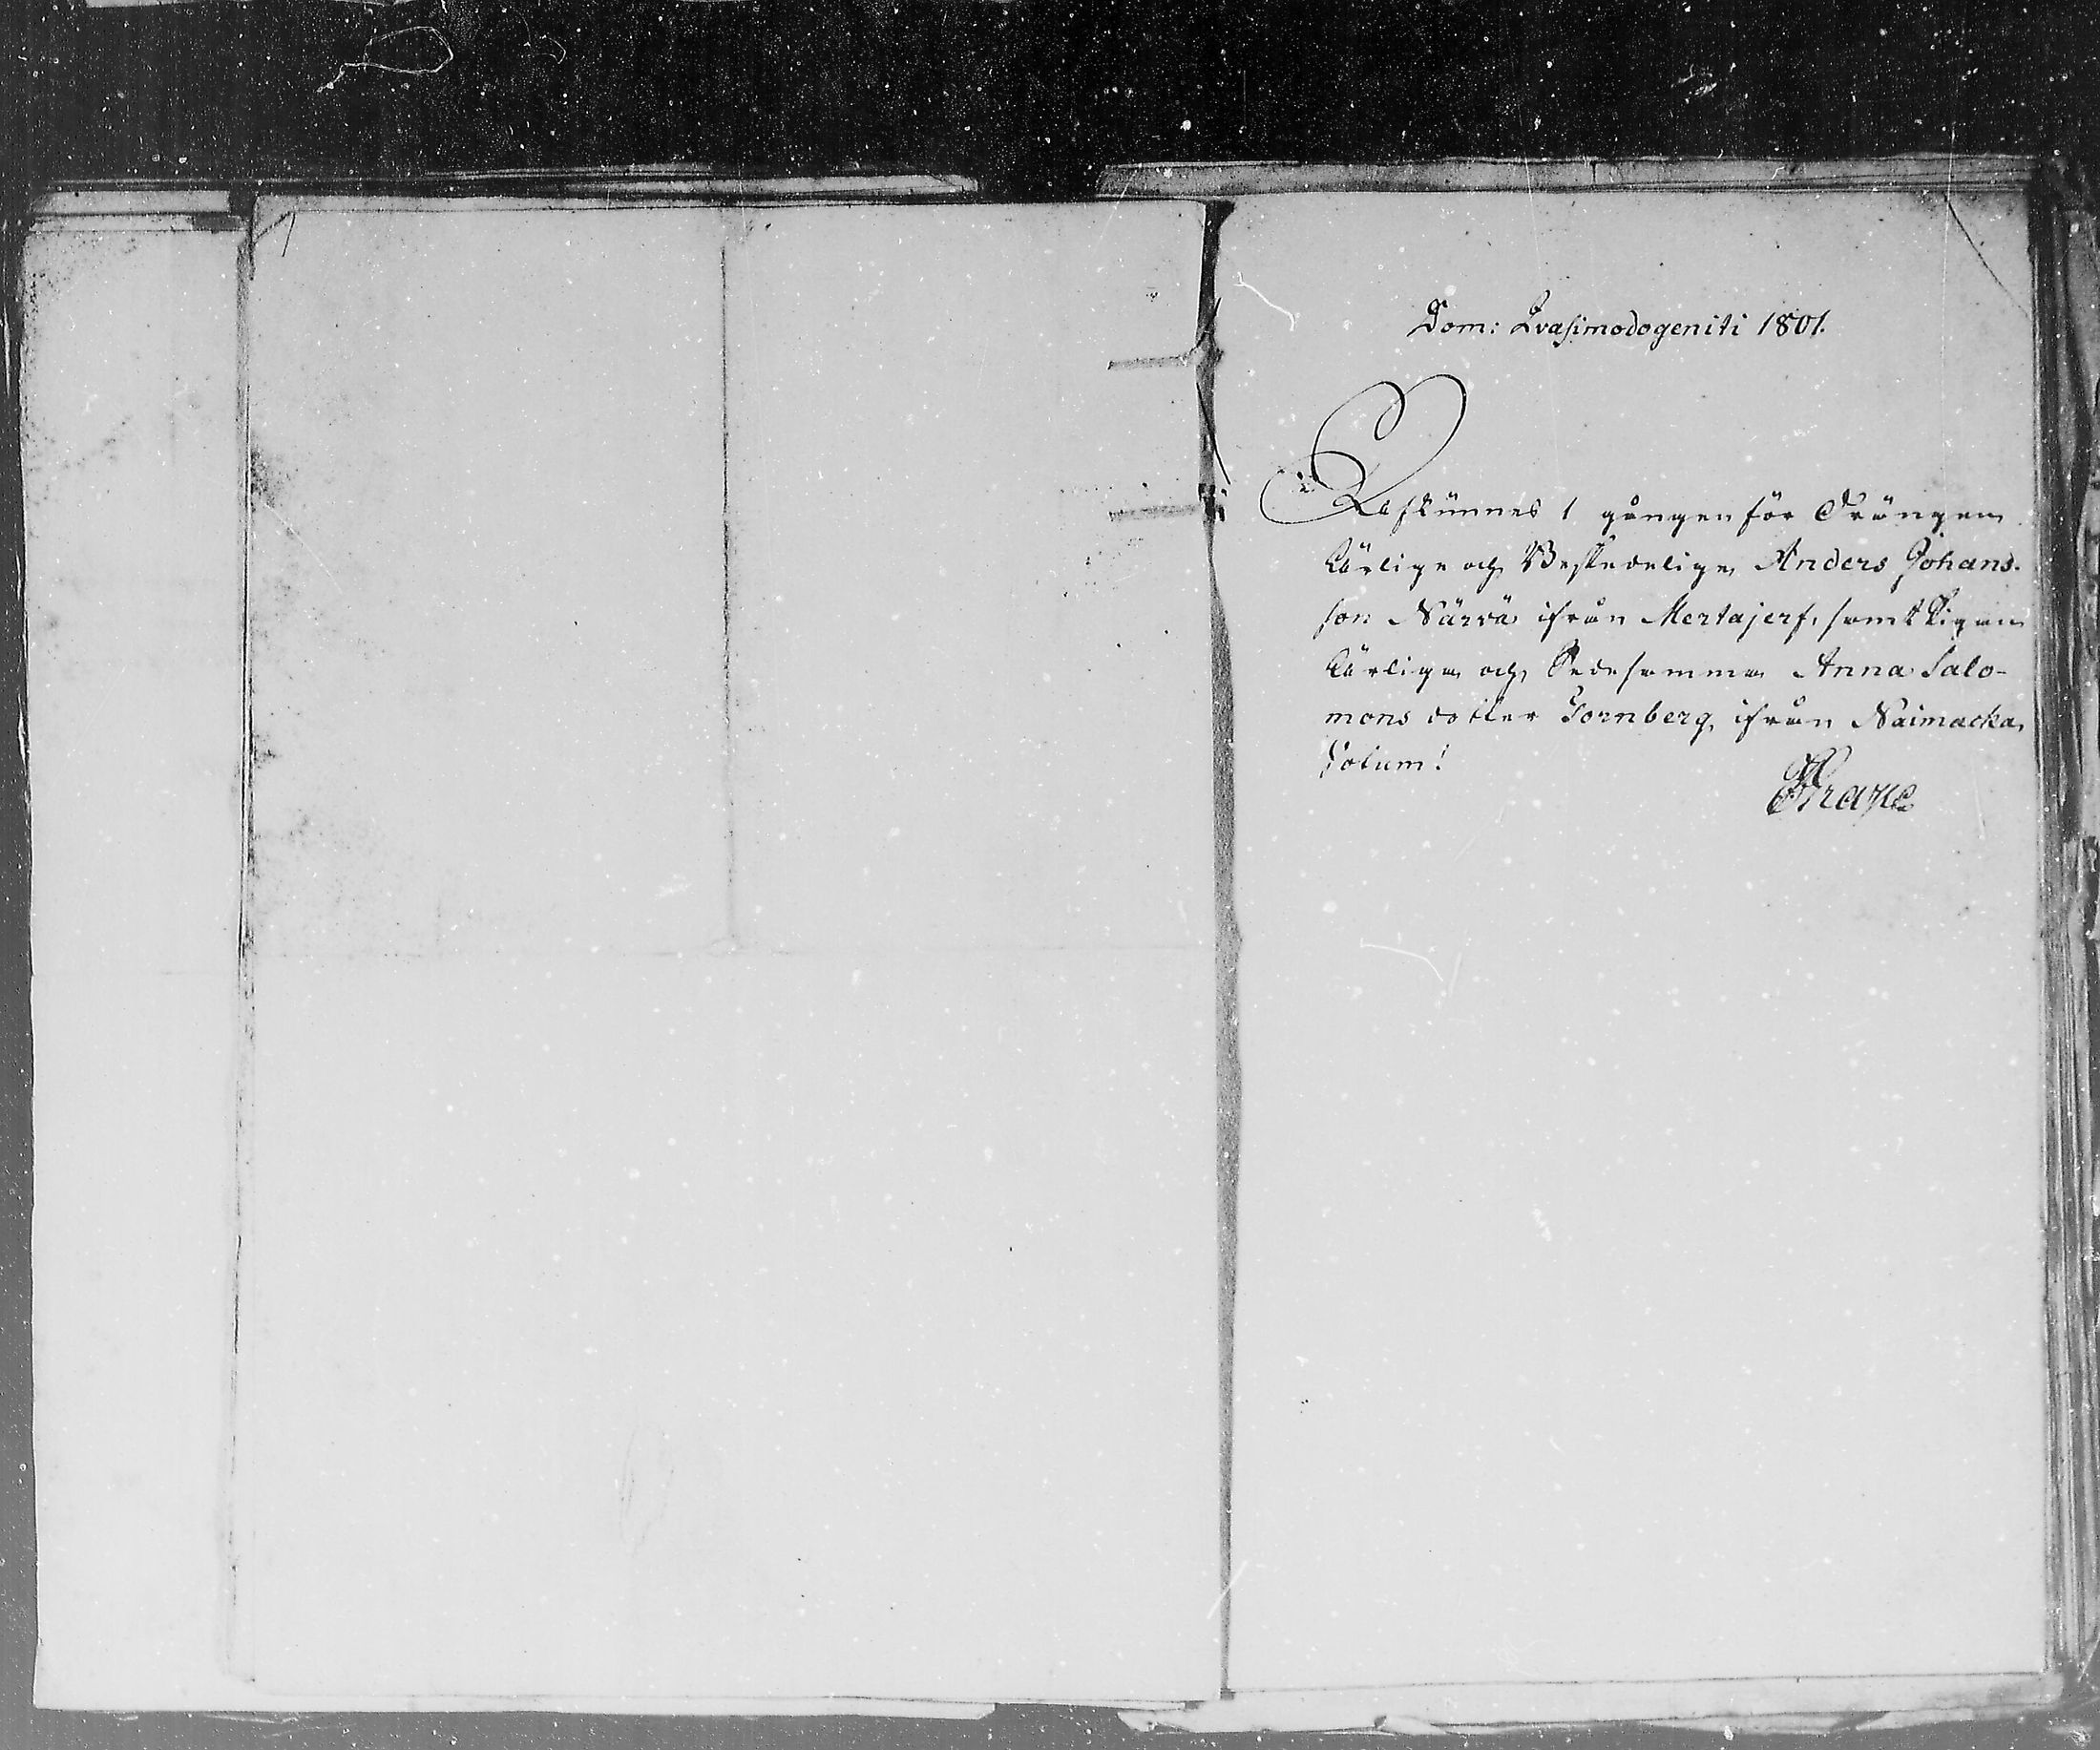 Dom: Qvasimodogeniti 1801.
Afkunnes 1 gången för Drängen
Ärlige och Beskedelige Anders Johans-
son Närvä ifrån Mertajerf, samt Pigan
Ärliga och Sedesamma Anna Salo-
mons dotter Fornberg ifrån Naimacka
Votum!